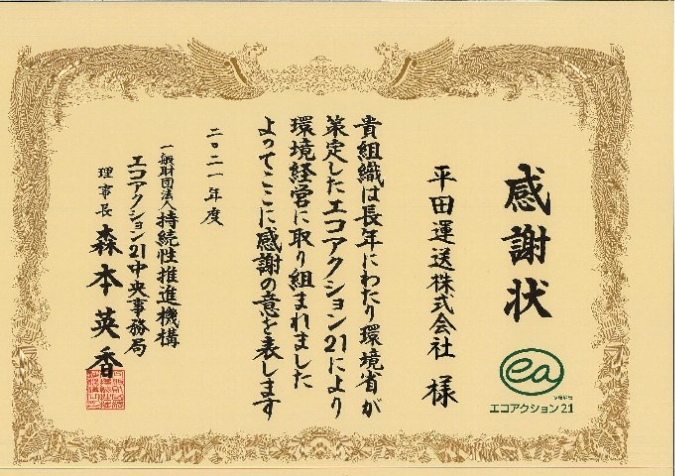 感謝状
ea
エコアクション21
平田運送株式会社 様
貴組織は長年にわたり環境省が
策定したエコアクション21により
環境経営に取り組まれました
よってここに感謝の意を表します
二〇二一年度
一般財団法人持続性推進機構
エコアクション21中央事務局
理事長 森本英香